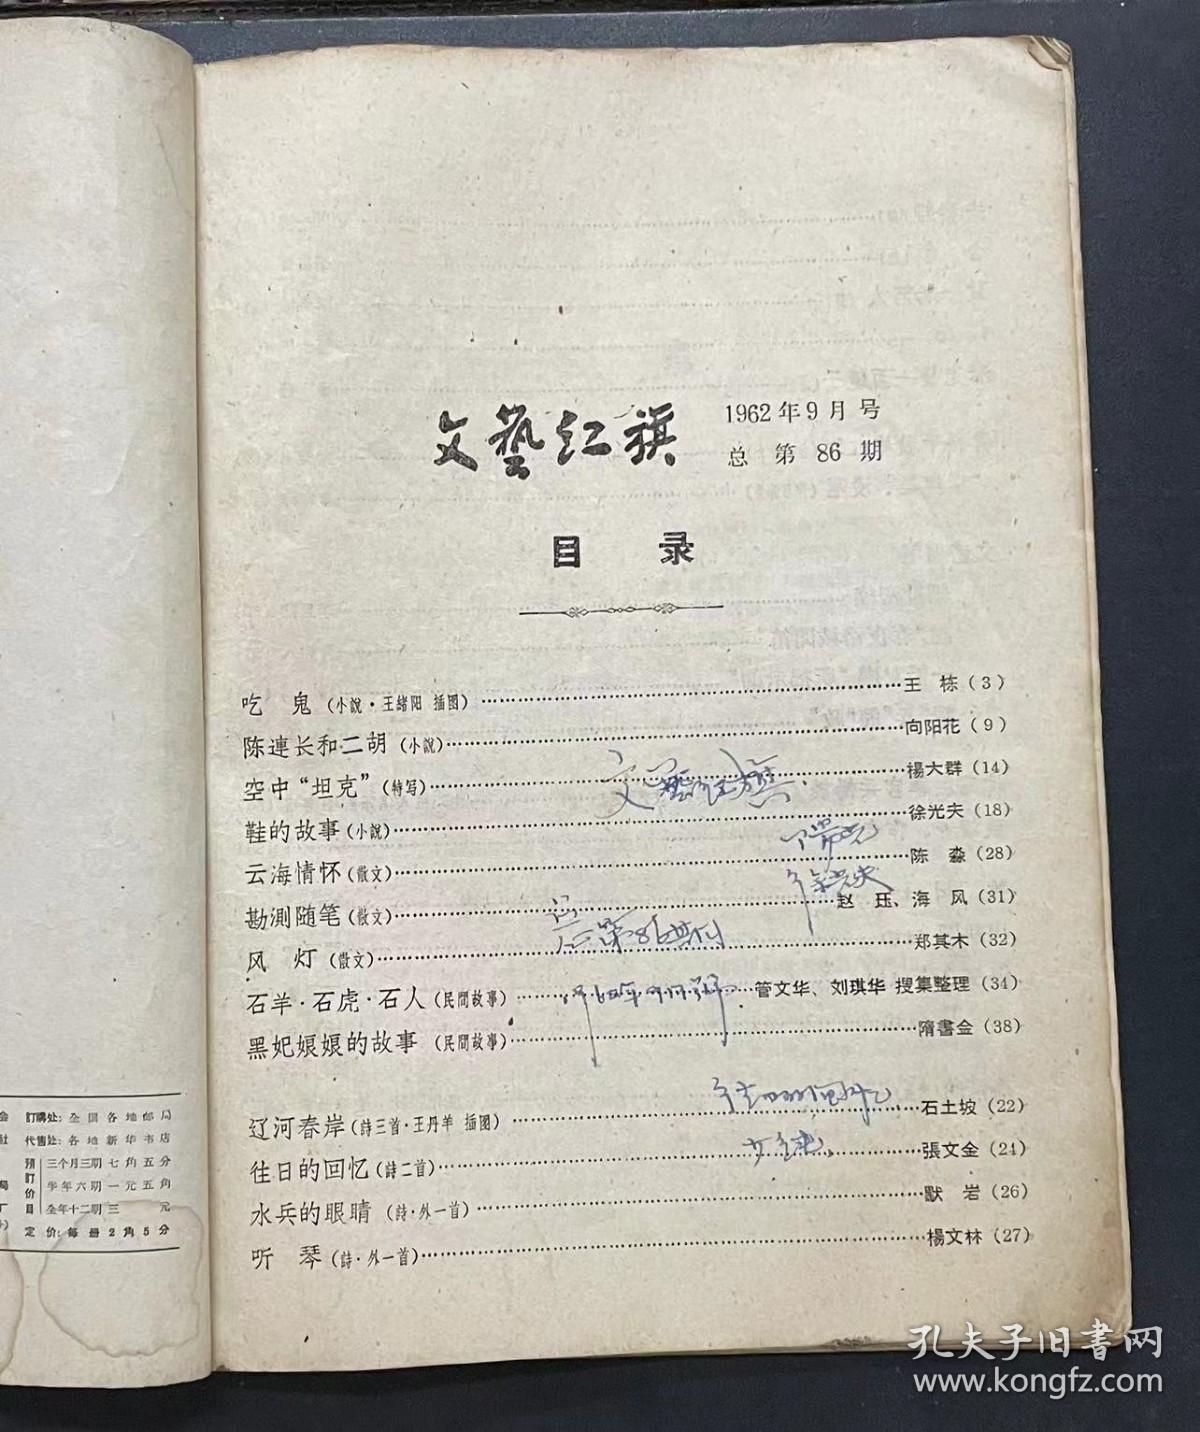 文藝红旗
1962年9月号
总第86期
目录
吃鬼(小說·王緒阳 插图)……王栋(3)
陈連长和二胡(小說)……向阳花(9)
空中“坦克”(特写)……楊大群(14)
鞋的故事(小說)……徐光夫(18)
云海情怀(散文)……陈淼(28)
勘測随笔(散文)……赵珏、海风(31)
风灯(散文)……郑其木(32)
石羊·石虎·石人(民間故事)……管文华、刘琪华 搜集整理(34)
黑妃娘娘的故事(民間故事)……隋書金(38)
辽河春岸(詩三首·王丹羊 插图)……石土坡(22)
往日的回忆(詩二首)……張文金(24)
水兵的眼睛(詩·外一首)……默岩(26)
听琴(詩·外一首)……楊文林(27)
文藝红旗
徐光夫
总第86期
訂購处:全国各地邮局
代售处:各地新华书店
預訂价目
三个月三期七角五分
半年六期一元五角
全年十二期三元
定价:每册2角5分
孔夫子旧书网
www.kongfz.com